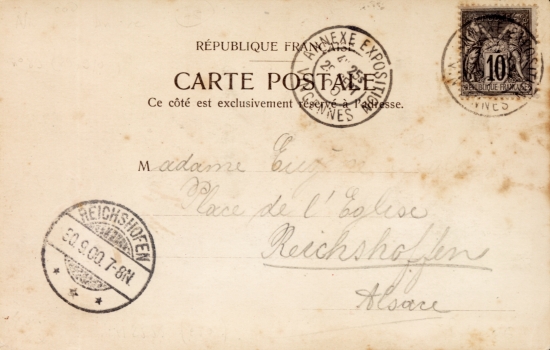 RÉPUBLIQUE FRANÇAISE
CARTE POSTALE
Ce côté est exclusivement réservé à l'adresse.
ANNEXE EXPOSITION
VINCENNES
10
REPUBLIQUE FRANCAISE
Madame
Place de l'Eglise
Reichshoffen
Alsace
REICHSHOFEN
30.9.00.7-8N.